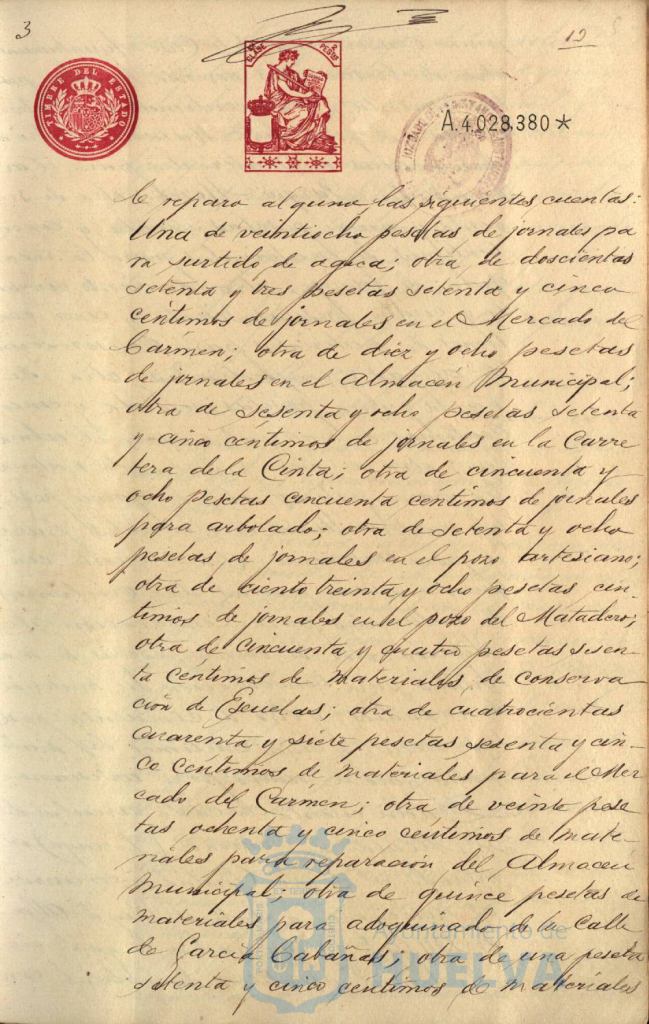 3
12
TIMBRE DEL ESTADO
CLASE
PESETAS
A.4.028.380*
te reparo alguno las siguientes cuentas:
Una de veintiocho pesetas de jornales pa
ra surtido de agua; otra de doscientas
setenta y tres pesetas setenta y cinco
céntimos de jornales en el Mercado del
Carmen; otra de diez y ocho pesetas
de jornales en el Almacén Municipal;
otra de sesenta y ocho pesetas setenta
y cinco céntimos de jornales en la Carre
tera de la Cinta; otra de cincuenta y
ocho pesetas cincuenta céntimos de jornales
para arbolado; otra de setenta y ocho
pesetas de jornales en el pozo artesiano;
otra de ciento treinta y ocho pesetas cén-
timos de jornales en el pozo del Matadero;
otra de cincuenta y cuatro pesetas sesen-
ta céntimos de materiales de conserva
ción de Escuelas; otra de cuatrocientas
cuarenta y siete pesetas sesenta y cin-
co céntimos de materiales para el Mer
cado del Carmen; otra de veinte pese
tas ochenta y cinco céntimos de mate-
riales para reparación del Almacén
Municipal; otra de quince pesetas de
materiales para adoquinado de la calle
de García Cabañas; otra de una peseta
setenta y cinco céntimos de materiales
Ayuntamiento de
HUELVA